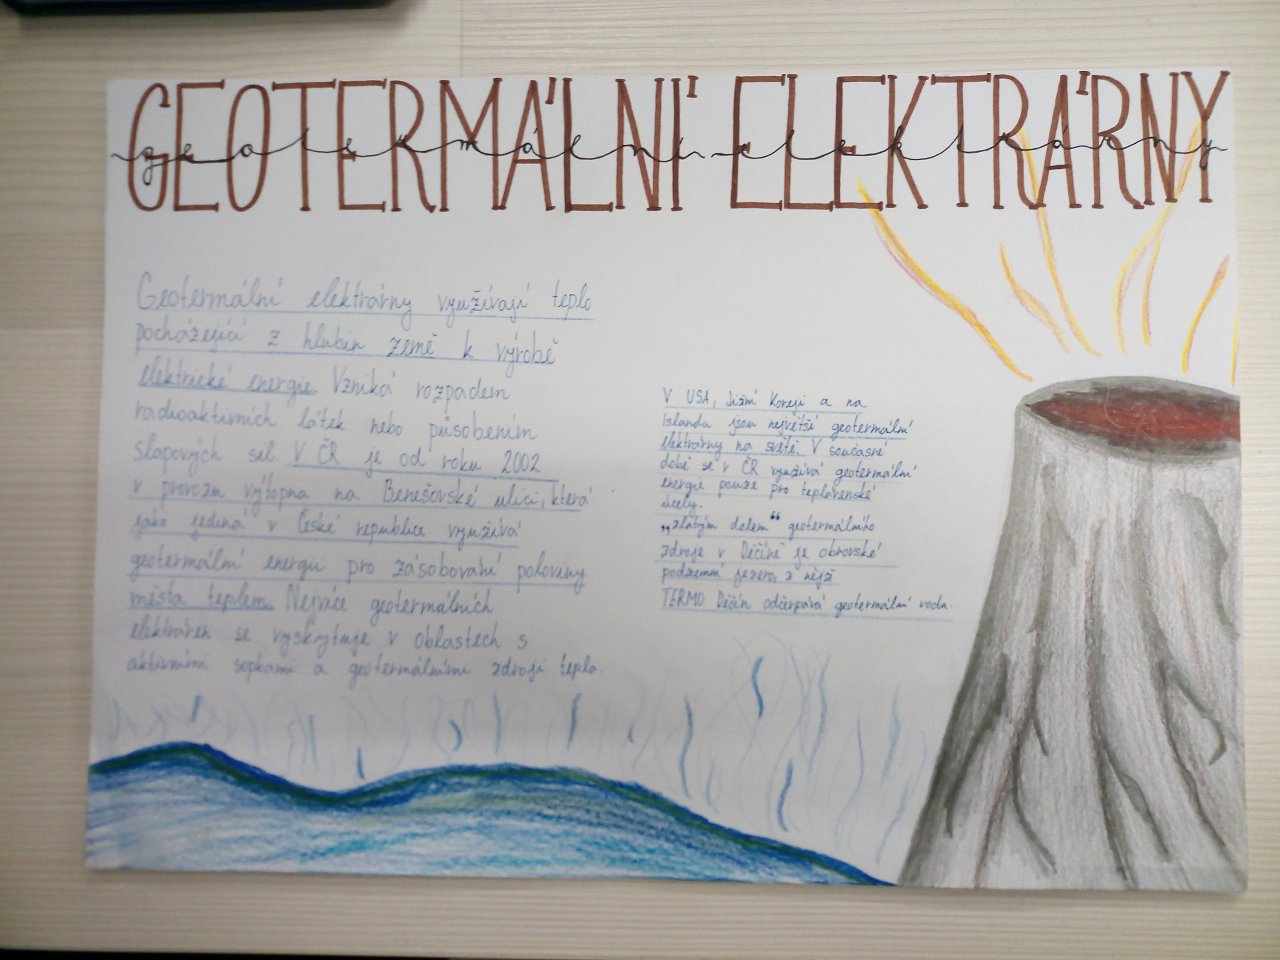 GEOTERMÁLNÍ ELEKTRÁRNY
geotermální elektrárny
Geotermální elektrárny využívají teplo
pocházející z hlubin země k výrobě
elektrické energie. Vzniká rozpadem
radioaktivních látek nebo působením
slapových sil. V ČR je od roku 2002
v provozu výtopna na Benešovské ulici, která
jako jediná v České republice využívá
geotermální energii pro zásobování poloviny
města teplem. Nejvíce geotermálních
elektráren se vyskytuje v oblastech s
aktivními sopkami a geotermálními zdroji tepla.
V USA, Jižní Koreji a na
Islandu jsou největší geotermální
elektrárny na světě. V současné
době se v ČR využívá geotermální
energie pouze pro teplárenské
účely.
„zlatým dolem“ geotermálního
zdroje v Děčíně je obrovské
podzemní jezero, z nějž
TERMO Děčín odčerpává geotermální vodu.